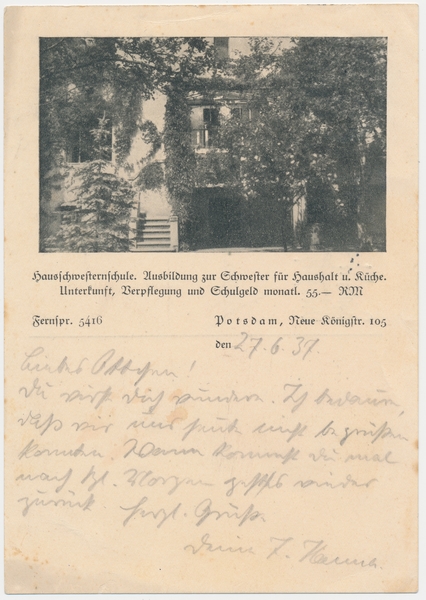 Hausschwesternschule. Ausbildung zur Schwester für Haushalt u. Küche.
Unterkunft, Verpflegung und Schulgeld monatl. 55.— RM
Fernspr. 5416
Potsdam, Neue Königstr. 105
den 27.6.37.
Liebes Ottchen!
Du wirst dich wundern. Ich bedaure,
daß wir uns heute nicht begrüßen
konnten. Wann kommst du mal
nach Morgen geht's wieder
zurück. Herzl. Grüße
Deine